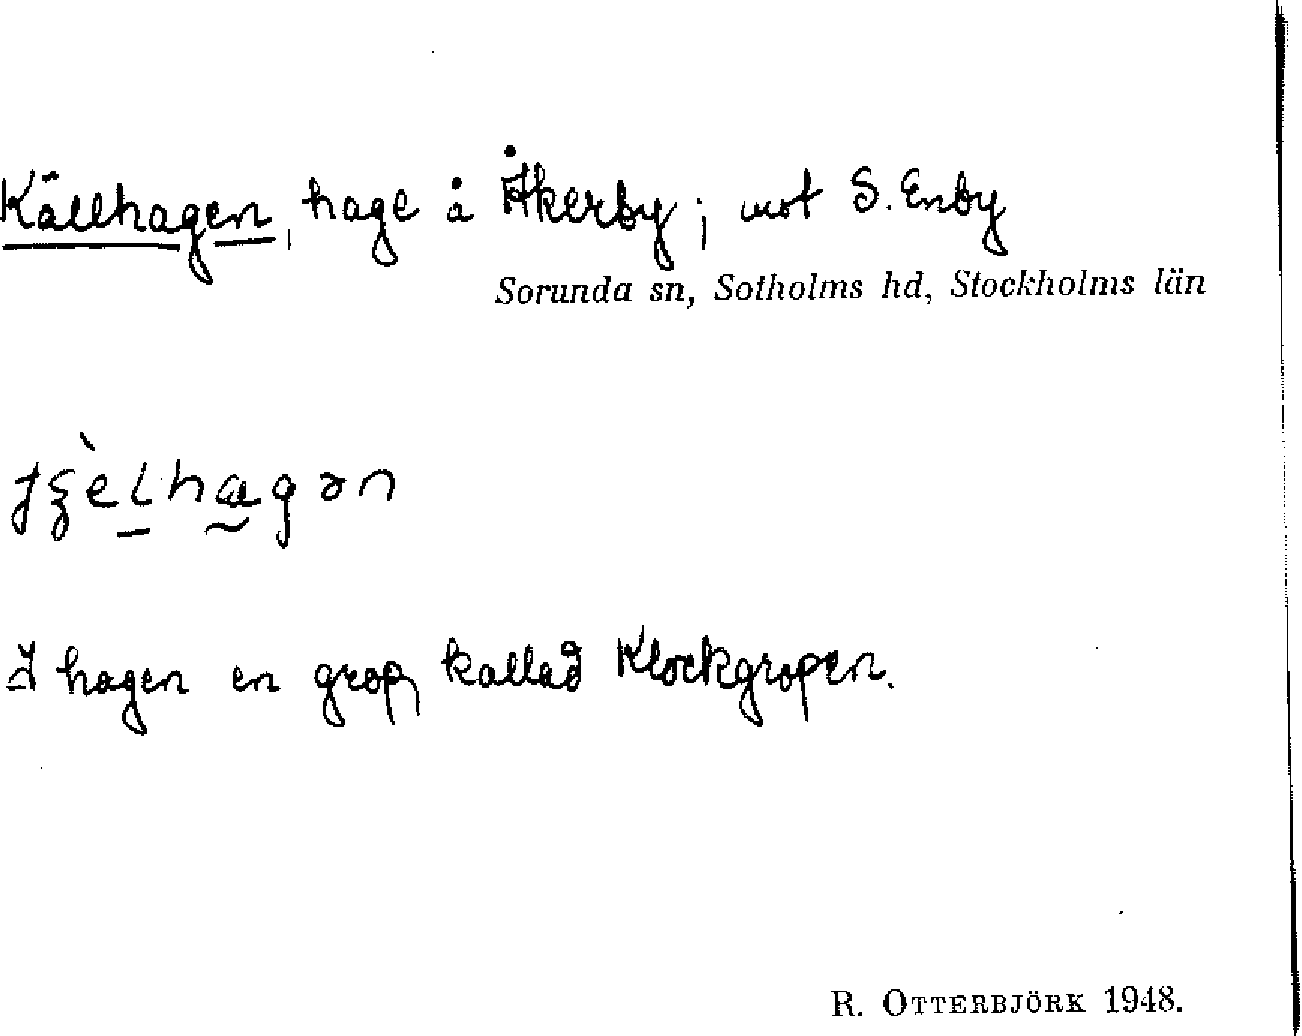 Källhagen, hage å Åkerby; mot S. Enby
Sorunda sn, Sotholms hd, Stockholms län
I hagen en grop, kallad Klockgropen.
R. OTTERBJÖRK 1948.